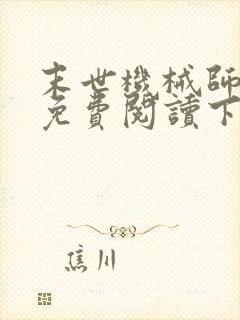 末世機械師
免費閱讀下
焦川